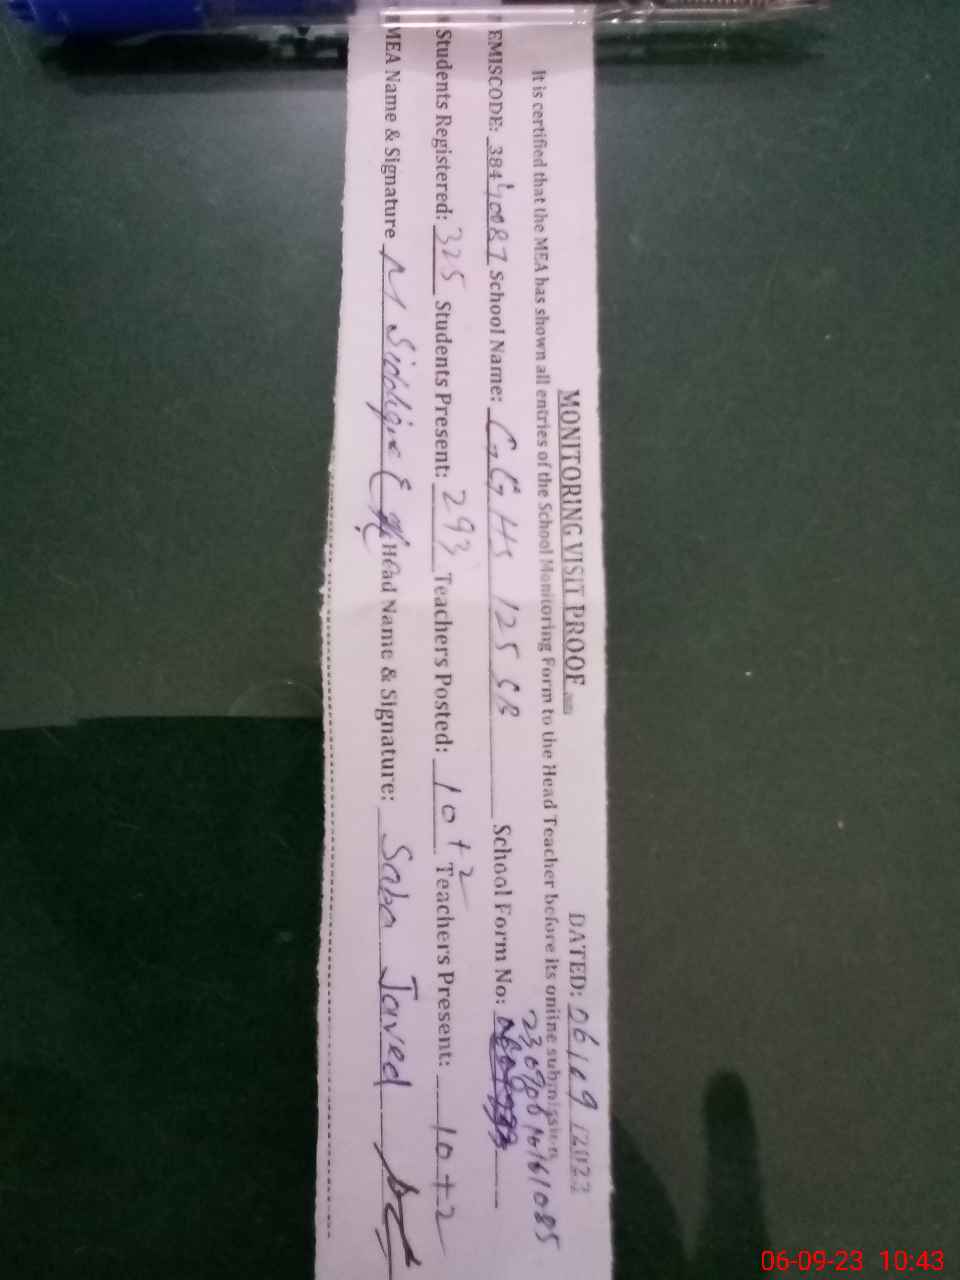 MONITORING VISIT PROOF
DATED: 06/09/2023
It is certified that the MEA has shown all entries of the School Monitoring Form to the Head Teacher before its online submission
EMISCODE: 38440087 School Name: GGHS 125 SB School Form No:
Students Registered: 325 Students Present: 293 Teachers Posted: 10+2 Teachers Present: 10+2
MEA Name & Signature M Siddique Head Name & Signature: Saba Javed
06-09-23 10:43